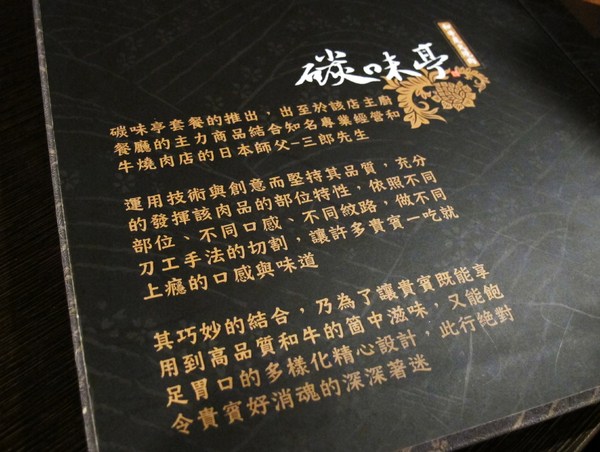 碳味亭
碳味亭套餐的推出，出至於該店主廚
餐廳的主力商品結合知名專業經營和
牛燒肉店的日本師父-三郎先生
運用技術與創意而堅持其品質，充分
的發揮該肉品的部位特性，依照不同
部位、不同口感、不同紋路，做不同
刀工手法的切割，讓許多貴賓一吃就
上癮的口感與味道
其巧妙的結合，乃為了讓貴賓既能享
用到高品質和牛的箇中滋味，又能飽
足胃口的多樣化精心設計，此行絕對
令貴賓好消魂的深深著迷